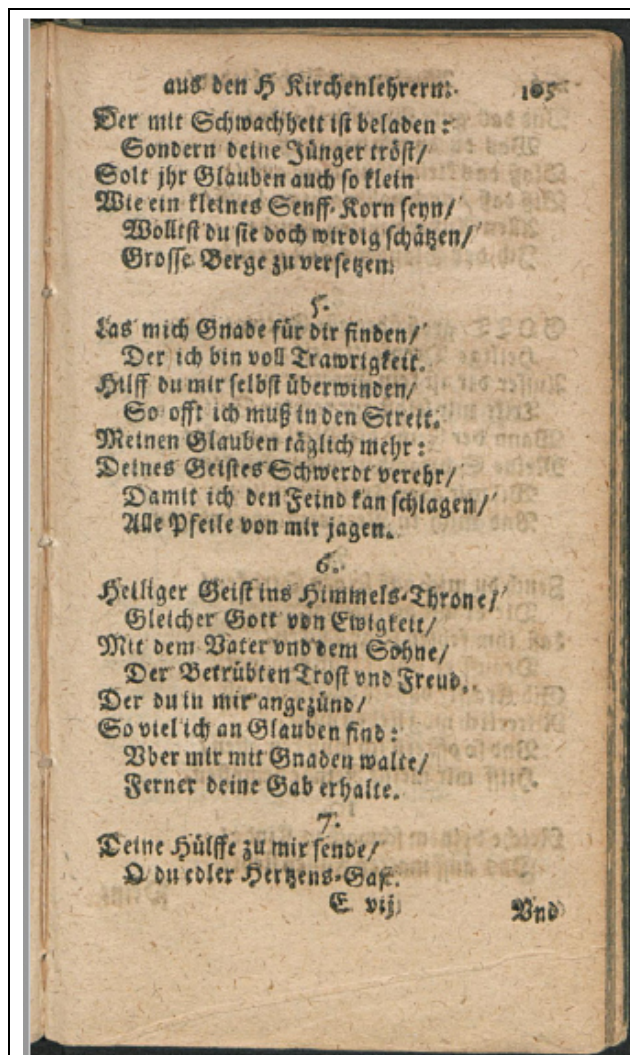 aus den H Kirchenlehrern. 105
Der mit Schwachheit ist beladen:
Sondern deine Jünger tröst/
Solt jhr Glauben auch so klein
Wie ein kleines Senff-Korn seyn/
Wolltst du sie doch wirdig schätzen/
Grosse Berge zu versetzen.
5.
Las mich Gnade für dir finden/
Der ich bin voll Trawrigkeit.
Hilff du mir selbst überwinden/
So offt ich muß in den Streit.
Meinen Glauben täglich mehr:
Deines Geistes Schwerdt verehr/
Damit ich den Feind kan schlagen/
Alle Pfeile von mir jagen.
6.
Heiliger Geist ins Himmels-Throne/
Gleicher Gott von Ewigkeit/
Mit dem Vater vnd dem Sohne/
Der Betrübten Trost vnd Freud.
Der du in mir angezünd/
So viel ich an Glauben find:
Vber mir mit Gnaden walte/
Ferner deine Gab erhalte.
7.
Deine Hülffe zu mir sende/
O du edler Hertzens-Gast.
E vij
Vnd